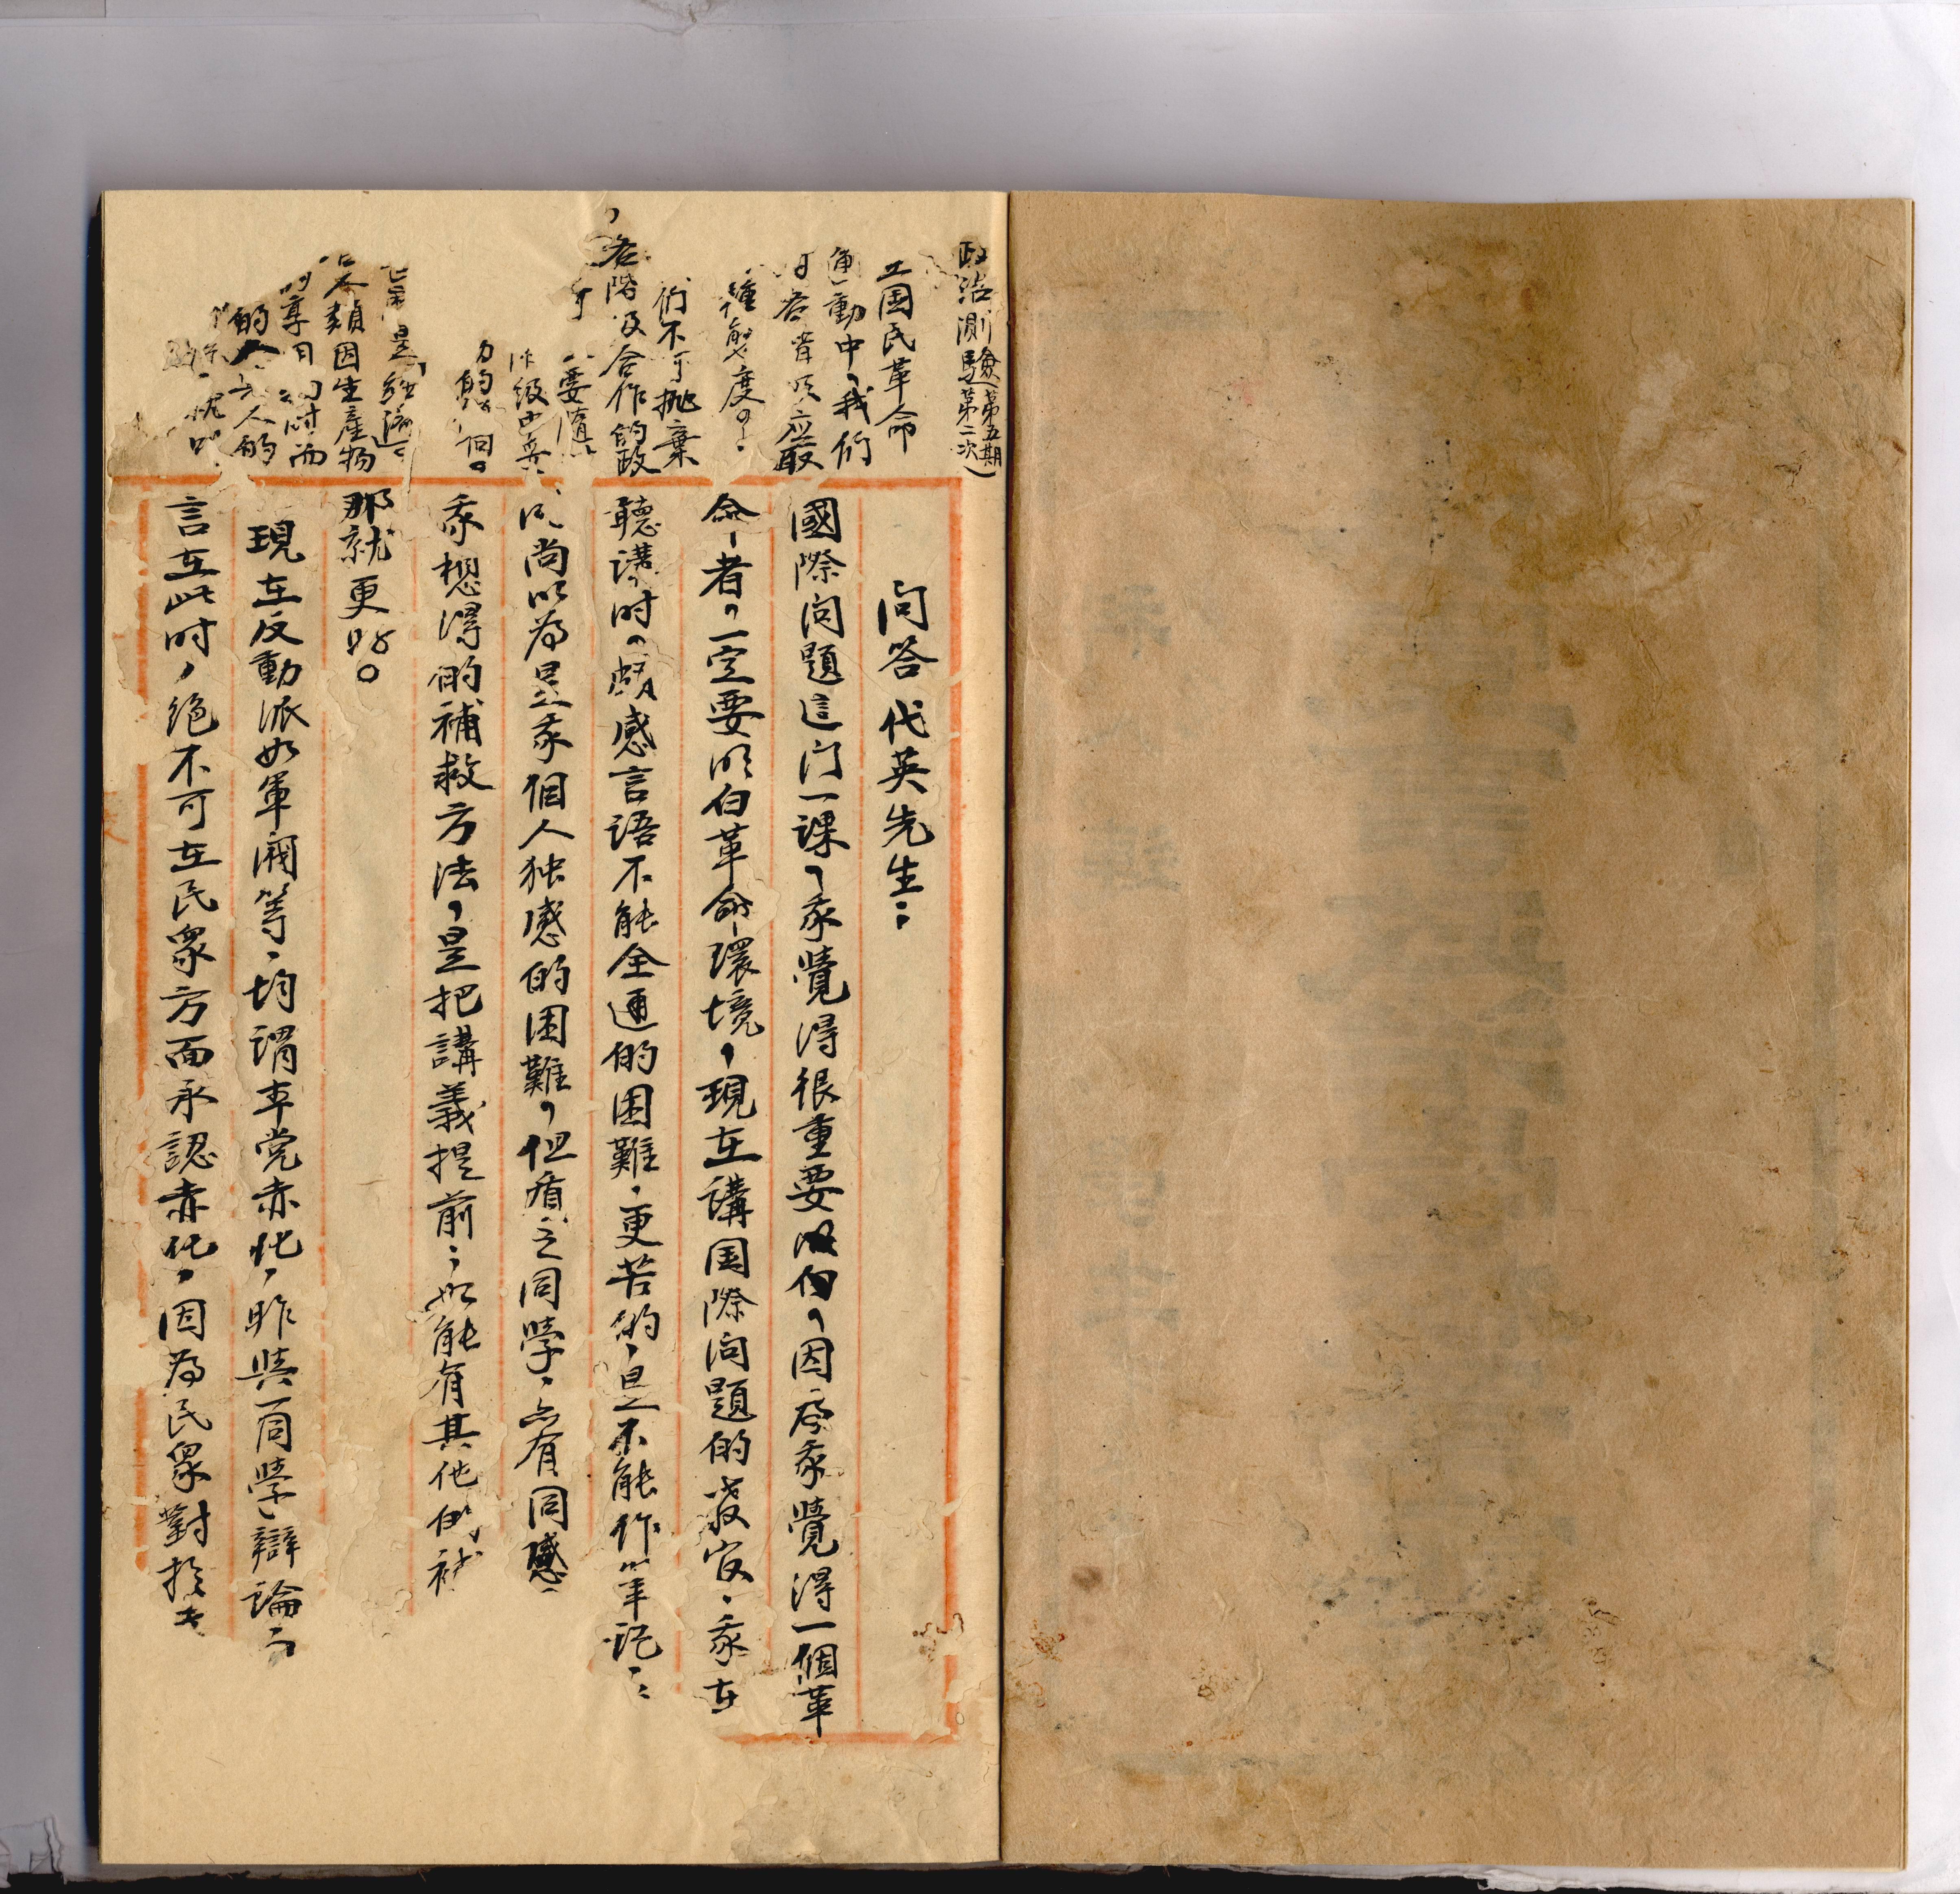 政治測驗（第五期第二次）
国民革命
運動中、我們
應嚴
種態度。
們不可拋棄
各階級合作的政
要隨
級
個。
是「經濟」。
類因生產物
享
的人
問答代英先生：
國際问題這门一課，我覺得很重要明白，因為我覺得一個革
命者，一定要明白革命環境，現在講国際问題的教官，我在
聽講时，頗感言語不能全通的困難，更苦的，是不能作筆記：
尚以為是我個人独感的困難，但質之同學，亦有同感，
我想得的補救方法，是把講義提前；如能有其他的補
那就更好。
現在反動派如軍阀等，均謂本党赤化，昨與一同學辯論
言在此时，絕不可在民眾方面承認赤化，因為民眾對於